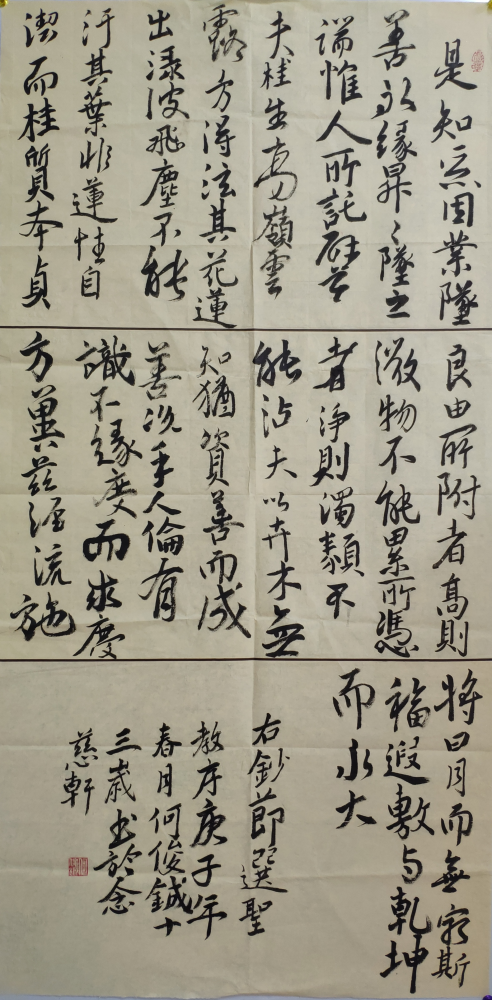 是知惡因業墜
善以緣昇〻墜之
端惟人所託譬
夫桂生高嶺雲
露方得泫其花蓮
出淥波飛塵不能
汙其葉非蓮性自
潔而桂質本貞
良由所附者高則
微物不能累所憑
者淨則濁類不
能沾夫以卉木無
知猶資善而成
善況乎人倫有
識不緣慶而求慶
方冀茲經流施
將日月而無窮斯
福遐敷與乾坤
而永大
右鈔節選聖
教序庚子年
春月何俊鋮十
三歲書於念
慈軒